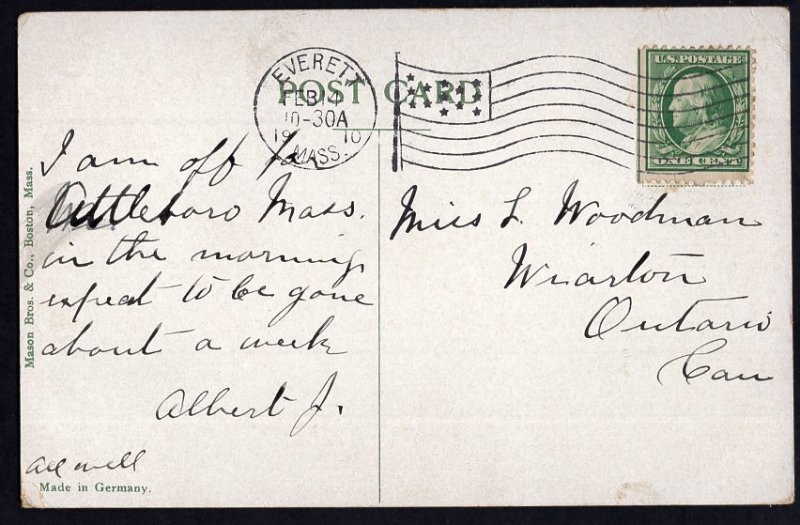 POST CARD
EVERETT
FEB 14
10-30A
19 10
MASS.
U.S. POSTAGE
ONE CENT
I am off to
Attleboro Mass.
in the morning
expect to be gone
about a week
Albert J.
all well
Miss L Woodman
Wiarton
Ontario
Can
Mason Bros. & Co., Boston, Mass.
Made in Germany.